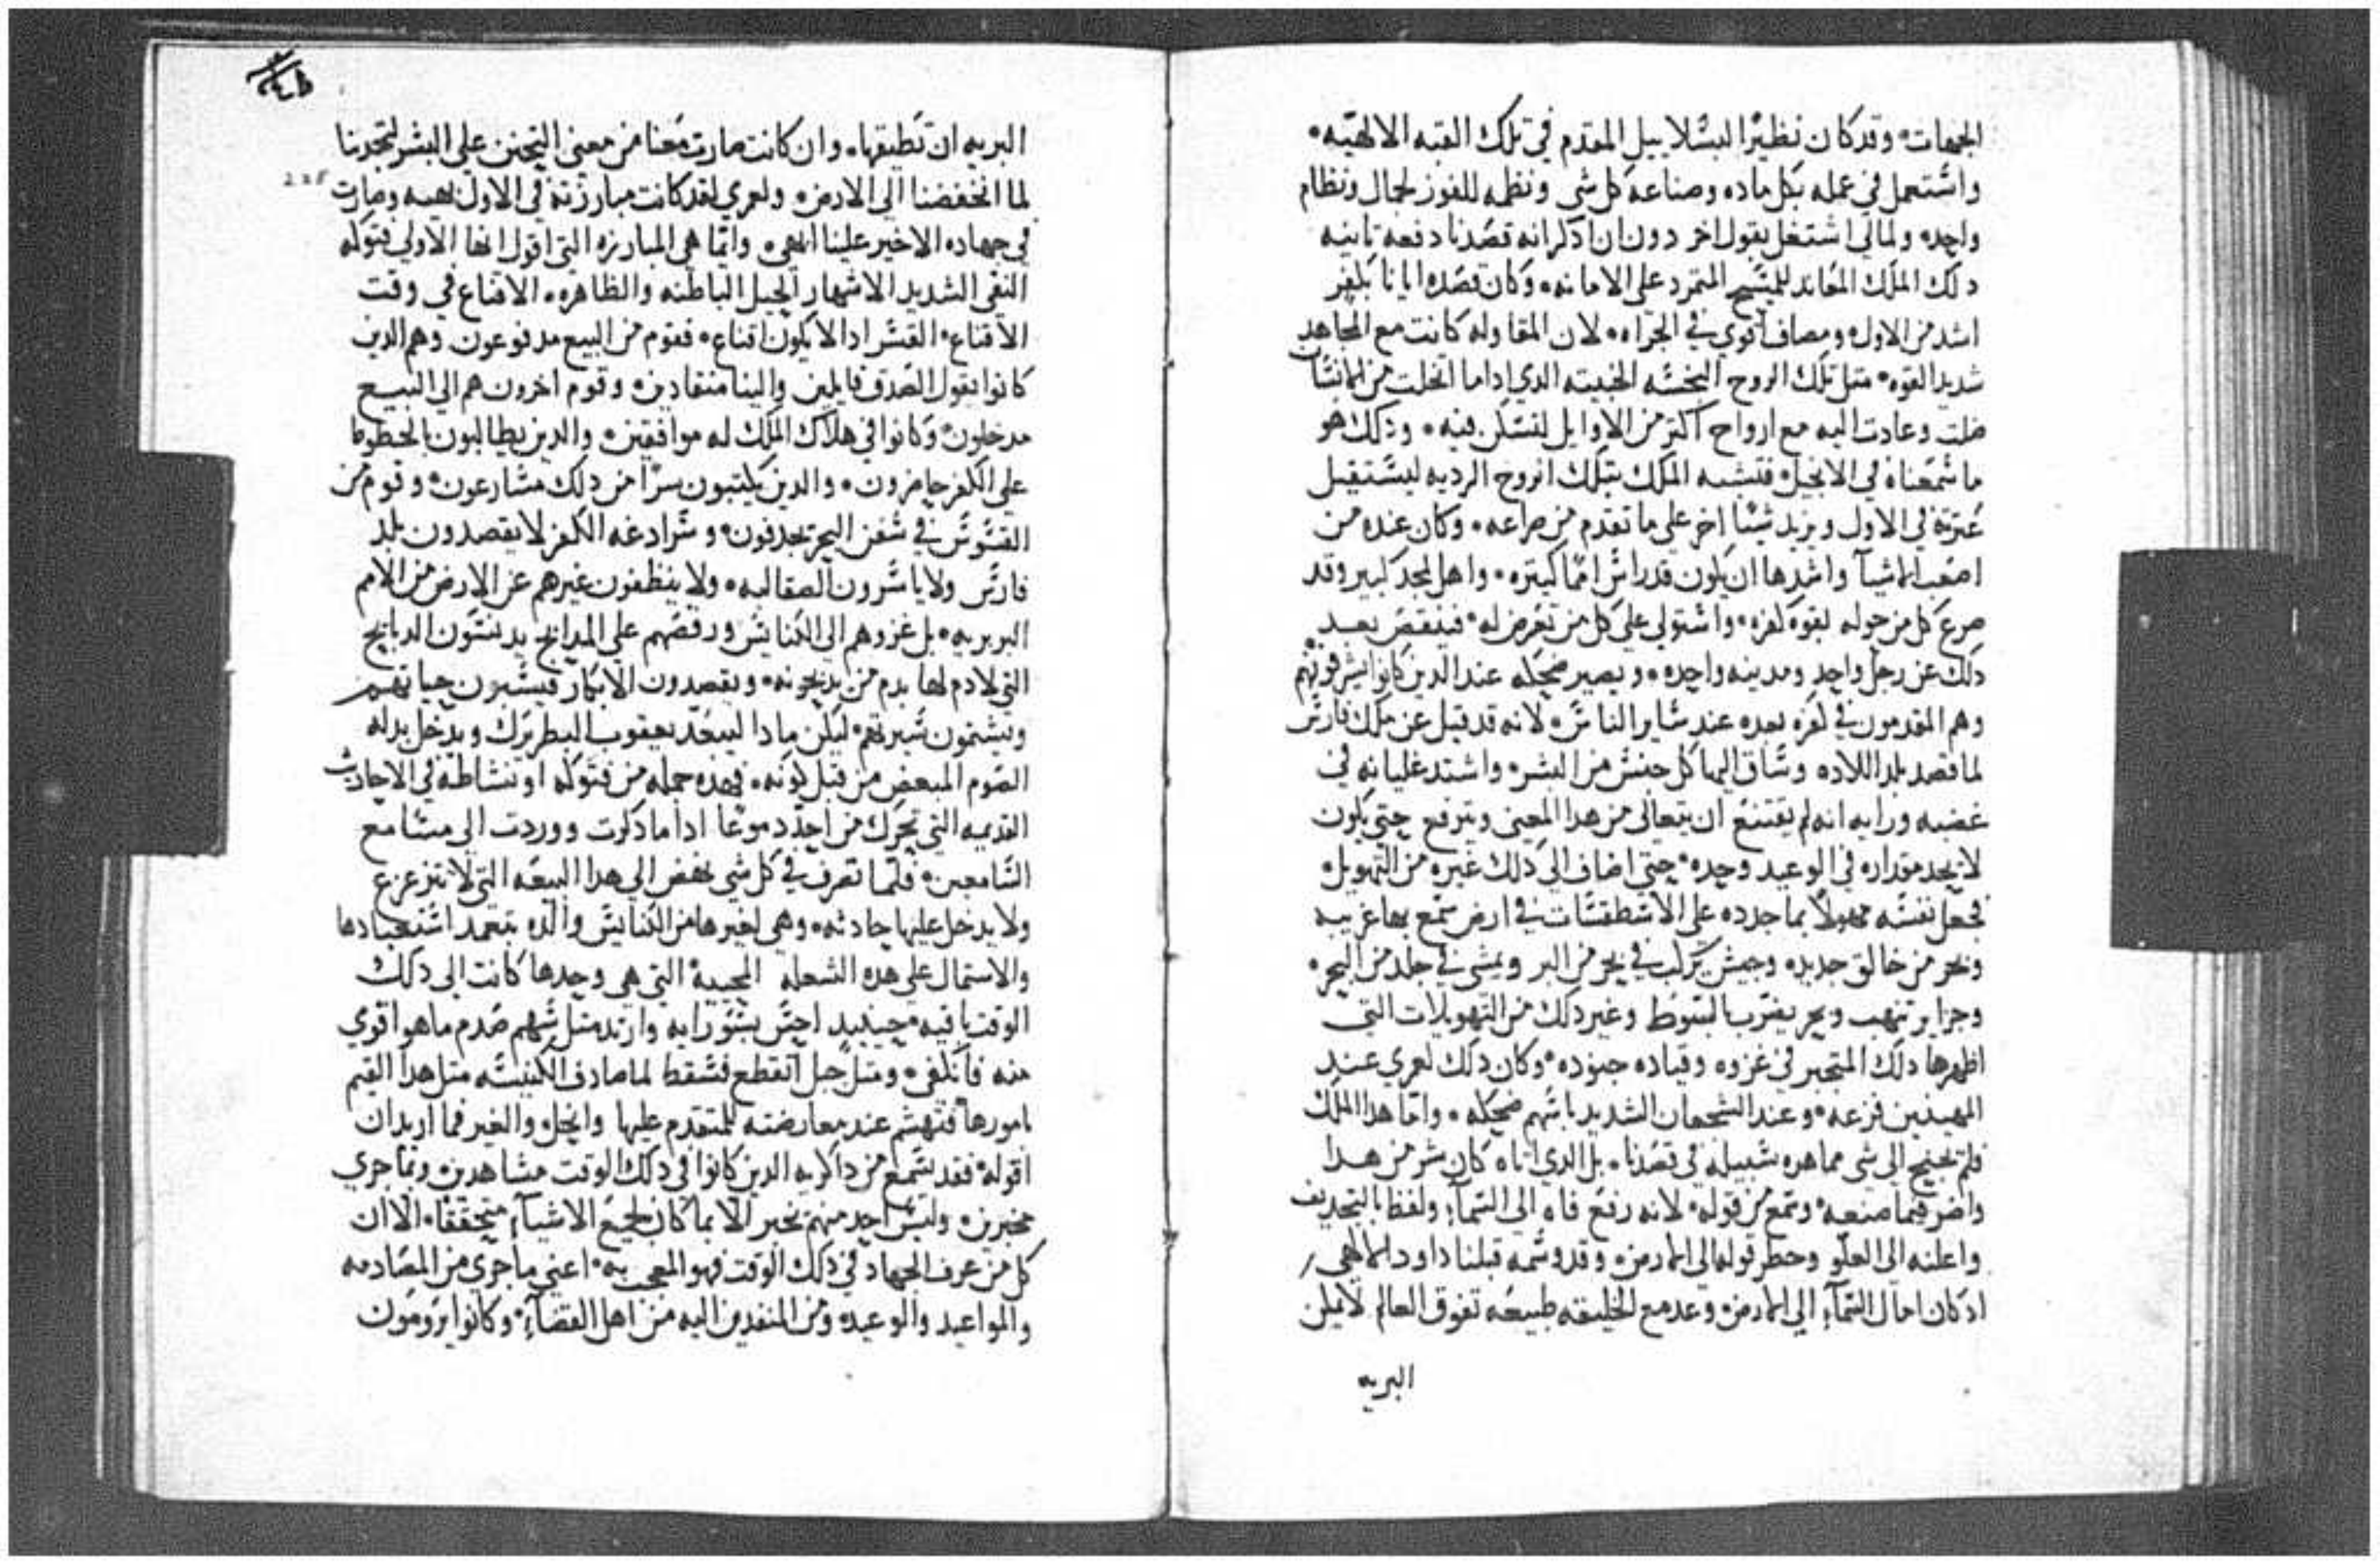 الجهات وقد كان نظيرًا لبسلاييل المقدم في تلك القبه الالهيه
واشتعمل في عمله بكل ماده وصناعه كل شي ونظمه للفوز لجمال ونظام
واحده ولمالي اشتغل بقول اخر دون ان ادكر انه قصدنا دفعه تانيه
دلك الملك المعاند للمسيح المتمرد علي الامانه وكان قصده ايانا بكفر
اشد من الاول ومصاف اقوي في الجراه لان المقاوله كانت مع المجاهد
شديد القوه متل تلك الروح النجسه الخبيته الدي اداما انحلت من الانسان
ضلت وعادت اليه مع ارواح اكتر من الاوايل لتسكن فيه وذلك هو
ما سمعناه في الانجيل فتشبه الملك بتلك الروح الرديه ليستقبل
عترته في الاول ويزيد شيًا اخر علي ما تقدم من صراعه وكان عنده من
اصعب الاشيا واشدها ان يكون قد راس امما كتيره واهل لمجد كبير وقد
صرع كل من حوله بقوه كفره واستولي علي كل من تعرض له فينقص بعد
دلك عن رجل واحد ومدينه واحده ويصير ضحكه عند الدين كانوا يشرفونهم
وهم المقدمون في كفره بعده عند ساير الناس لانه قد قيل عن ملك فارس
لما قصد بلد اللاده وساق اليها كل جنس من البشر واشتد غليانه في
غضبه ورايه انه لم يقتنع ان يتعالي من هدا المعني ويترفع حتي يكون
لا يحد مقداره في الوعيد وحده حتي اضاف الي دلك غيره من التهويل
فجعل نفسه مهولًا بما جدده علي الاسطقسات في ارض سمع بها غريبه
وبحر من خالق جديده وجيش يركب في بحر من البر ويمشي في جلد من البحر
وجزاير تنهب وبحر يضرب بالسوط وغير دلك من التهويلات التي
اظهرها دلك المتجبر في غزوه وقياده جنوده وكان دلك لعمري عند
المهينين فزعه وعند الشجعان الشديد باسهم ضحكه واما هدا الملك
فلم يحتج الي شي مما هده سبيله في قصدنا بل الدي اتاه كان شر من هدا
واضر فيما صنعه وسمع من قوله لانه رفع فاه الي السماء ولفظ بالتجديف
واعلنه الي العلو وحطر قوله الي الارض وقد وسمه قبلنا داود الالهي
اد كان احال السماء الي الارض وعد مع الخليقه طبيعه تفوق العالم لا يمكن
البريه
البريه ان تطيقها وان كانت صارت معنا من معني التحنن علي البشر لتجدبنا
لما انخفضنا الي الارض ولعمري لقد كانت مبارزته في الاول بهيه وصارت
في جهاده الاخير علينا ابهي واتما هي المبارزه التي اقول انها الاولي فتوكله
النفي الشديد الاشهار الحيل الباطنه والظاهره الاقناع في وقت
الاقناع القسر ادا لا يكون اقناع فقوم من البيع مدفوعون وهم الدين
كانوا بقول الصدق قايلين والينا منقادين وقوم اخرون هم الي البيع
مدخلون وكانوا في هلاك الملك له موافقين والدين يطالبون بالخطوط
علي الكفر حاضرون والدين يكتبون سرًا من دلك مسارعون وقوم من
القسوس في سفن البحر يحرقون وسرادغه الكفر لا يقصدون بلد
فارس ولا ياسرون الصقالبه ولا ينظفون غيرهم عن الارض من الامم
البربريه بل غزوهم الي الكنايس ورقصهم علي المدابح يدنسون الدبايح
التي لا دم لها بدم من يدبحونه ويقصدون الابكار فيسبون حياتهم
ويشتمون سيرتهم ليكن مادا ليبعد يعقوب البطريرك ويدخل بدله
القوم المبغض من قبل كونه فهده جمله من فتوكله او نشاطه في الاحاديث
القديمه التي تحرك من احد دموعًا ادا ما دكرت ووردت الي مسامع
السامعين فلما تصرف في كل شي نهض الي هدا البيعه التي لا تتزعزع
ولا يدخل عليها حادته وهي لغيرها من الكنايس والده يتعمد استعبادها
والاستمال علي هده الشعله المحييه التي هي وحدها كانت الي دلك
الوقت باقيه حينيد احس بسو رايه وارتد متل سهم صدم ما هو اقوي
منه فانكفي ومتل حبل انقطع فسقط لما صادف الكنيسه متل هدا القيم
بامورها فتهشم عند معارضته للمتقدم عليها وانحل والغير فما اريد ان
اقوله فقد سمع من داكريه الدين كانوا في دلك الوقت مشاهدين وبما جري
مخبرين وليس احد منهم يخبر الا بما كان لجميع الاشياء متحققًا الا ان
كل من عرف الجهاد في دلك الوقت فهو المعجب به اعني ما جري من المصادمه
والمواعيد والوعيد ومن المنفدين اليه من اهل القضاء وكانوا يرومون